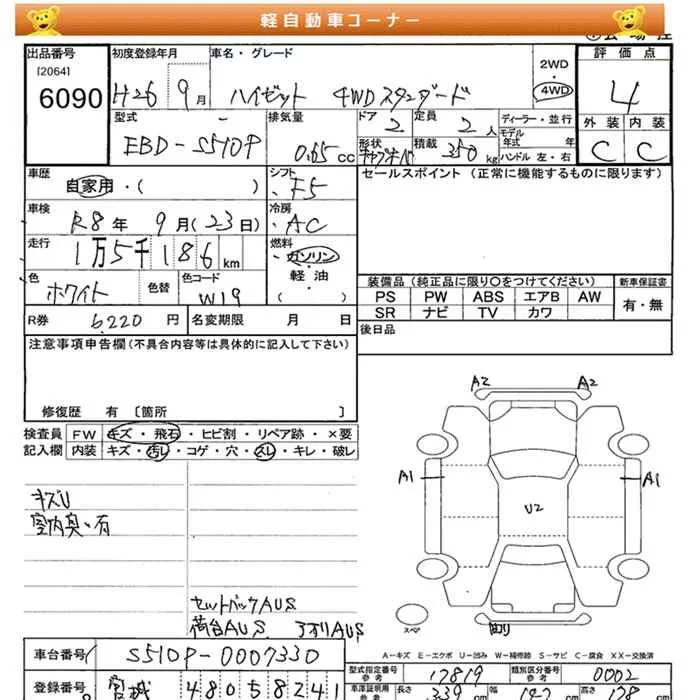 軽自動車コーナー
出品番号
[2064]
6090
初度登録年月
H26 9月
車名・グレード
ハイゼット 4WDスタンダード
2WD
4WD
評価点
4
外装 内装
C C
型式
EBD-S510P
排気量
0.65cc
ドア
2
定員
2人
ディーラー・並行
モデル年式 年式
形状
積載
350kg
ハンドル 左・右
車歴
自家用・( )
シフト
F5
セールスポイント(正常に機能するものに限ります)
車検
R8年 9月(23日)
冷房
AC
走行
1万5千186km
燃料
ガソリン
軽・油
( )
色
ホワイト
色替
色コード
W19
装備品(純正品に限り〇をつけてください)
新車保証書
PS PW ABS エアB AW
有・無
SR ナビ TV カワ
R券
6,220円
名変期限 月 日
後日品
注意事項申告欄(不具合内容等は具体的に記入して下さい)
修復歴 有 〔箇所 〕
検査員
記入欄
FW キズ・飛石・ヒビ割・リペア跡・×要
内装 キズ・汚レ・コゲ・穴・スレ・キレ・破レ
キズU
室内臭・有
セットバックAUS
荷台AUS アオリAUS
A2 A2
A1 A1
U2
スペア
A-キズ E-エクボ U-凹み W-補修跡 S-サビ C-腐食 XX-交換済
車台番号
S510P-0007330
型式指定番号
参考
17819
類別区分番号
参考
0002
登録番号
宮城 480 う 8241
車庫証明用
参考
長さ 339 cm
幅
cm
高さ 178 cm